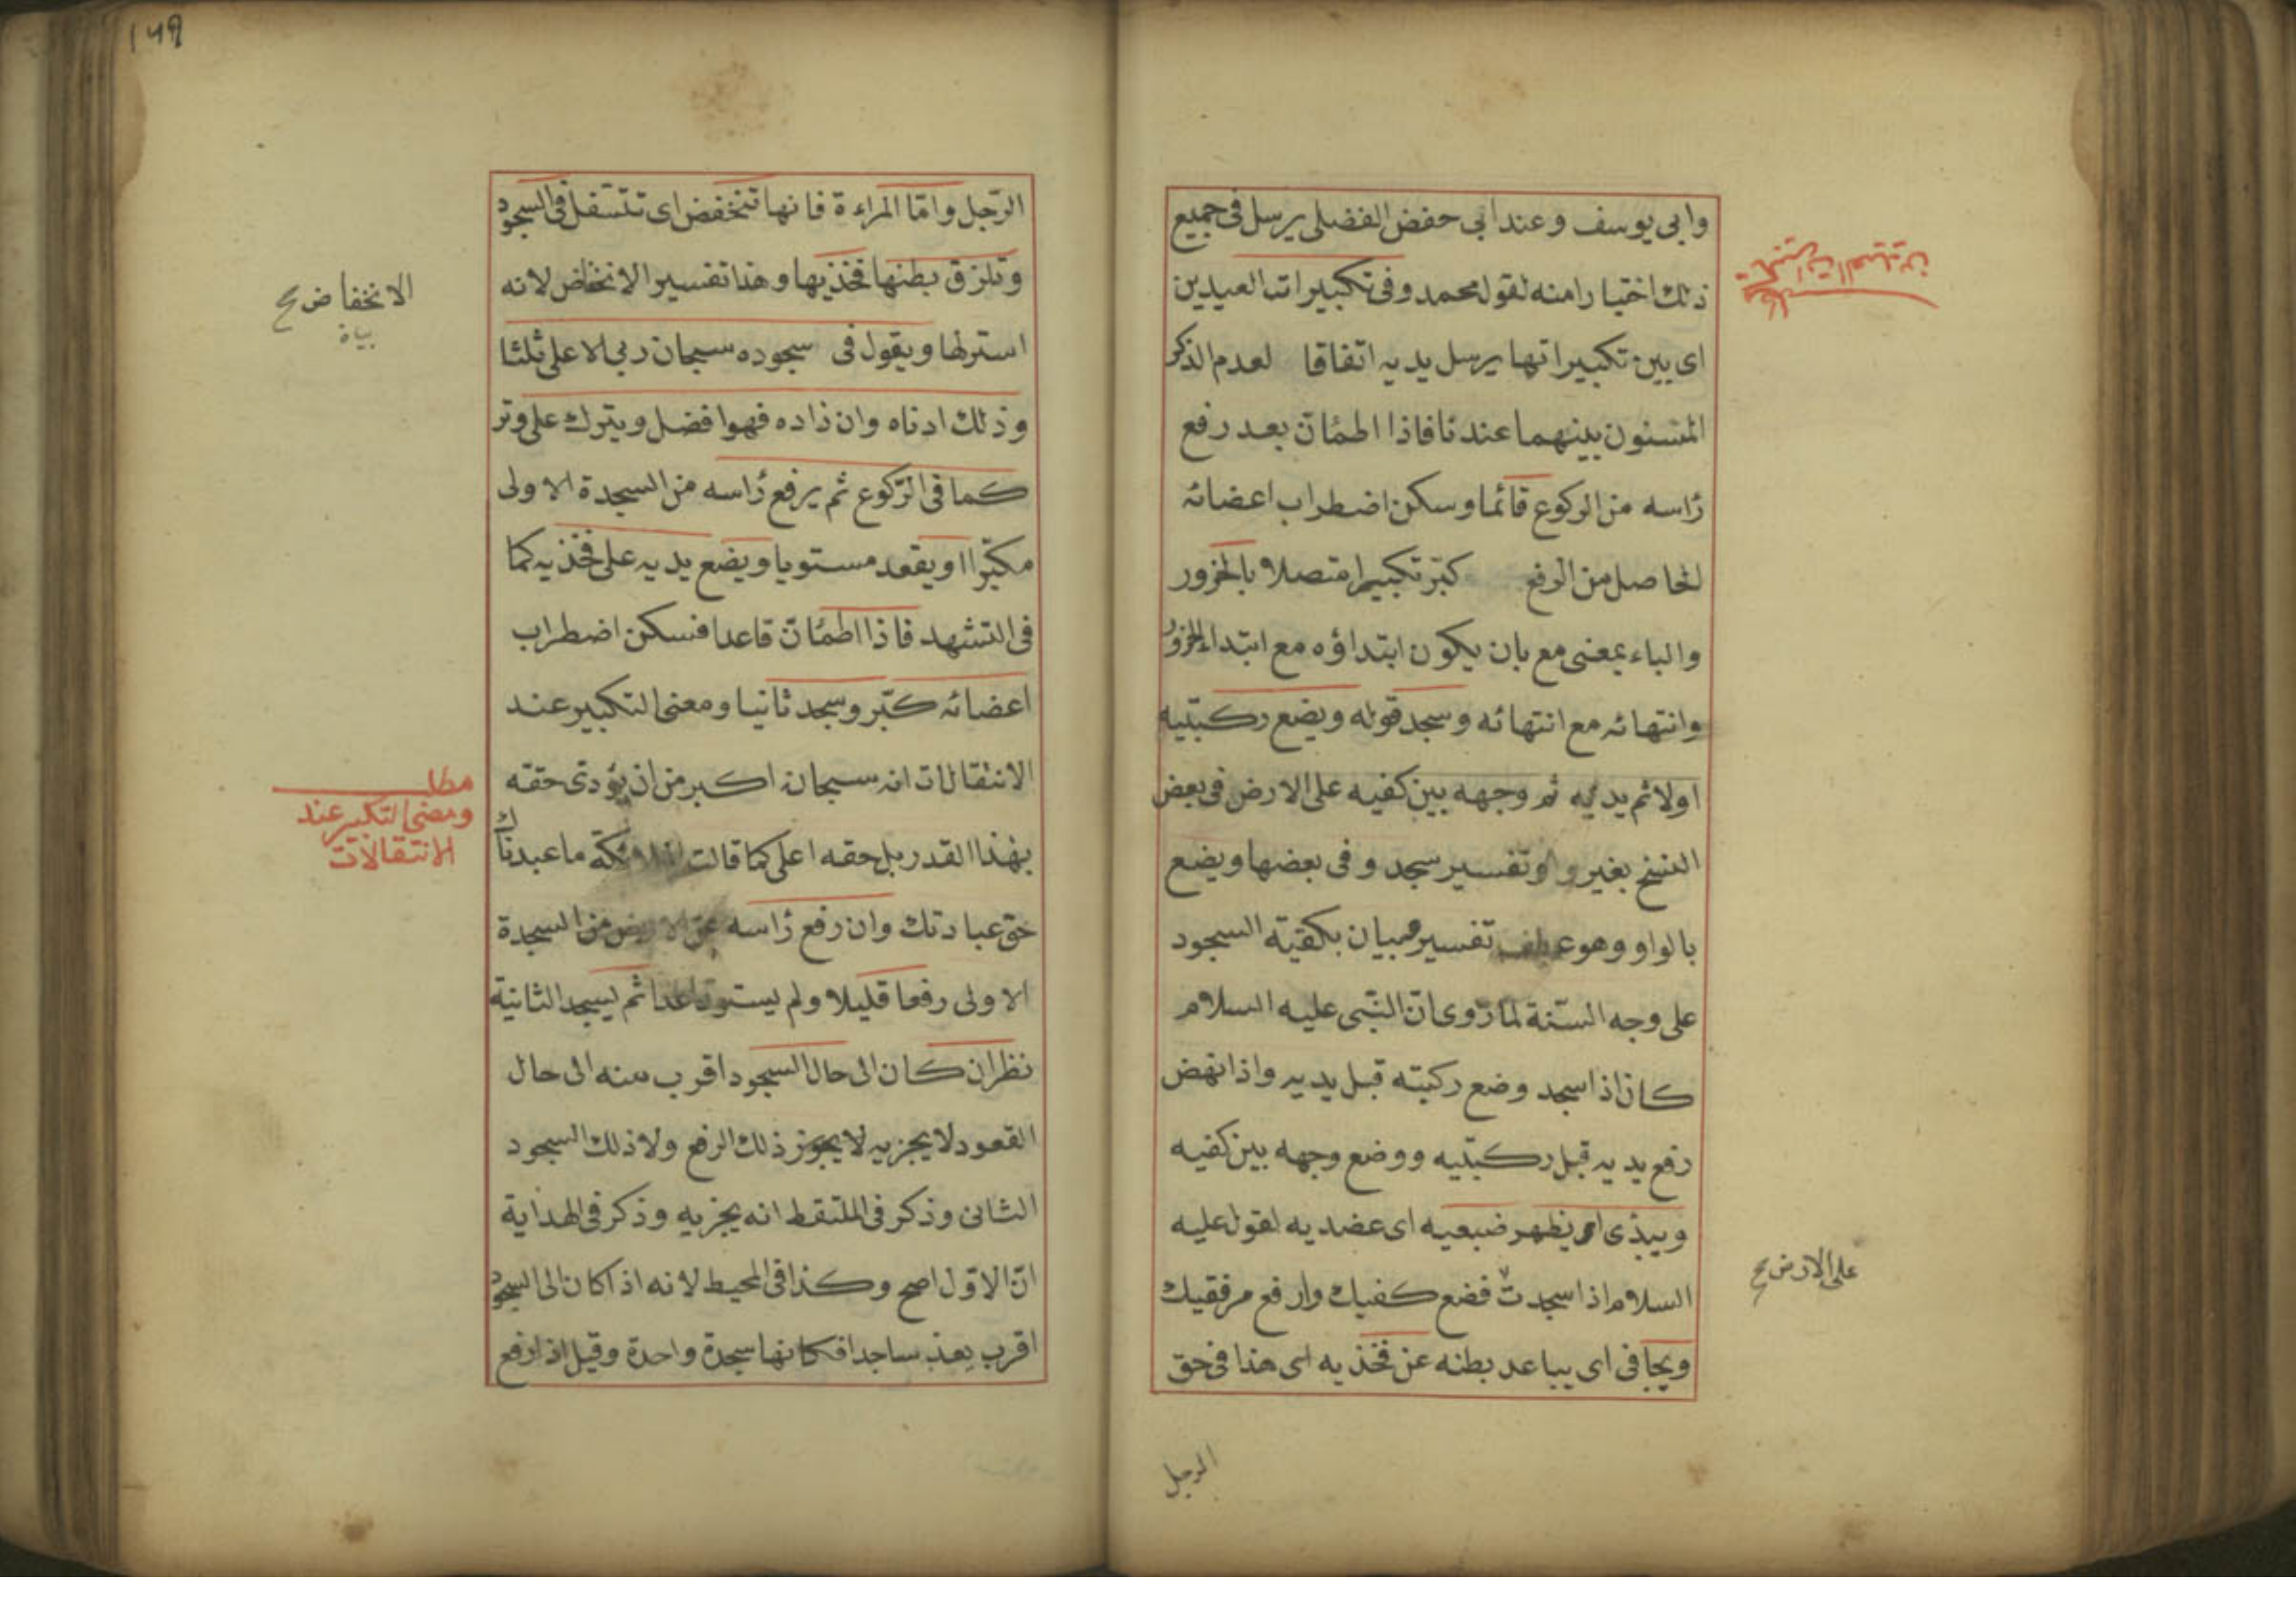 وابى يوسف وعند ابى حفض الفضلى يرسل فى جميع
ذلك اختيارا منه لقول محمد وفى تكبيرات العيدين
تكبيرات العيدين
اى بين تكبيراتها يرسل يديه اتفاقا لعدم الذكر
المسنون بينهما عندنا فاذا اطمأن بعد رفع
رأسه من الركوع قائما وسكن اضطراب اعضائه
الحاصل من الرفع كبّر تكبيرا متصلا بالخرور
والباء بمعنى مع بان يكون ابتداؤه مع ابتداء الخرور
وانتهائه مع انتهائه وسجد قوله ويضع ركبتيه
اولا ثم يديه ثم وجهه بين كفيه على الارض فى بعض
النسخ بغير واو تفسير سجد وفى بعضها ويضع
بالواو وهو عطف تفسير بيان بكفيّة السجود
على وجه السّنة لما رّوى انّ النّبى عليه السلام
كان اذا سجد وضع ركبته قبل يديه واذا نهض
رفع يديه قبل ركبتيه ووضع وجهه بين كفيه
ويبدى اى يظهر ضبعيه اى عضديه لقول عليه
السلام اذا سجدت فضع كفيك وارفع مرفقيك
على الارض صح
ويجافى اى يباعد بطنه عن فخذيه اى هذا فى حق
الرجل
١٤٩
الرّجل وامّا المراءة فانها تنخفض اى تتسفل فى السجود
وتلزق بطنها فخذيها وهذا تفسير الانخفاض لانه
الانخفاض صح
بيان
استرلها ويقول فى سجوده سبحان ربى الاعلى ثلثا
وذلك ادناه وان زاده فهو افضل ويترك على وتر
كما فى الرّكوع ثم يرفع رأسه من السجدة الاولى
مكبّرا ويقعد مستويا ويضع يديه على فخذيه كما
فى التشهد فاذا اطمأنّ قاعدا فسكن اضطراب
اعضائه كبّر وسجد ثانيا ومعنى التكبير عند
الانتقالات انه سبحانه اكبر من ان يؤدى حقه
مطلب
ومعنى التكبير عند
الانتقالات
بهذا القدر بل حقه اعلى كما قالت الملائكة ما عبدناك
حق عبادتك وان رفع رأسه عن الارض من السجدة
الاولى رفعا قليلا ولم يستو قاعدا ثم يسجد الثانية
نظر ان كان الى حال السجود اقرب منه الى حال
القعود لا يجزيه لا يجوز ذلك الرفع ولا ذلك السجود
الثانى وذكر فى الملتقط انه يجزيه وذكر فى الهداية
انّ الاوّل اصح وكذا فى المحيط لانه اذا كان الى السجود
اقرب يعد ساجدا فكانها سجدة واحدة وقيل اذا رفع